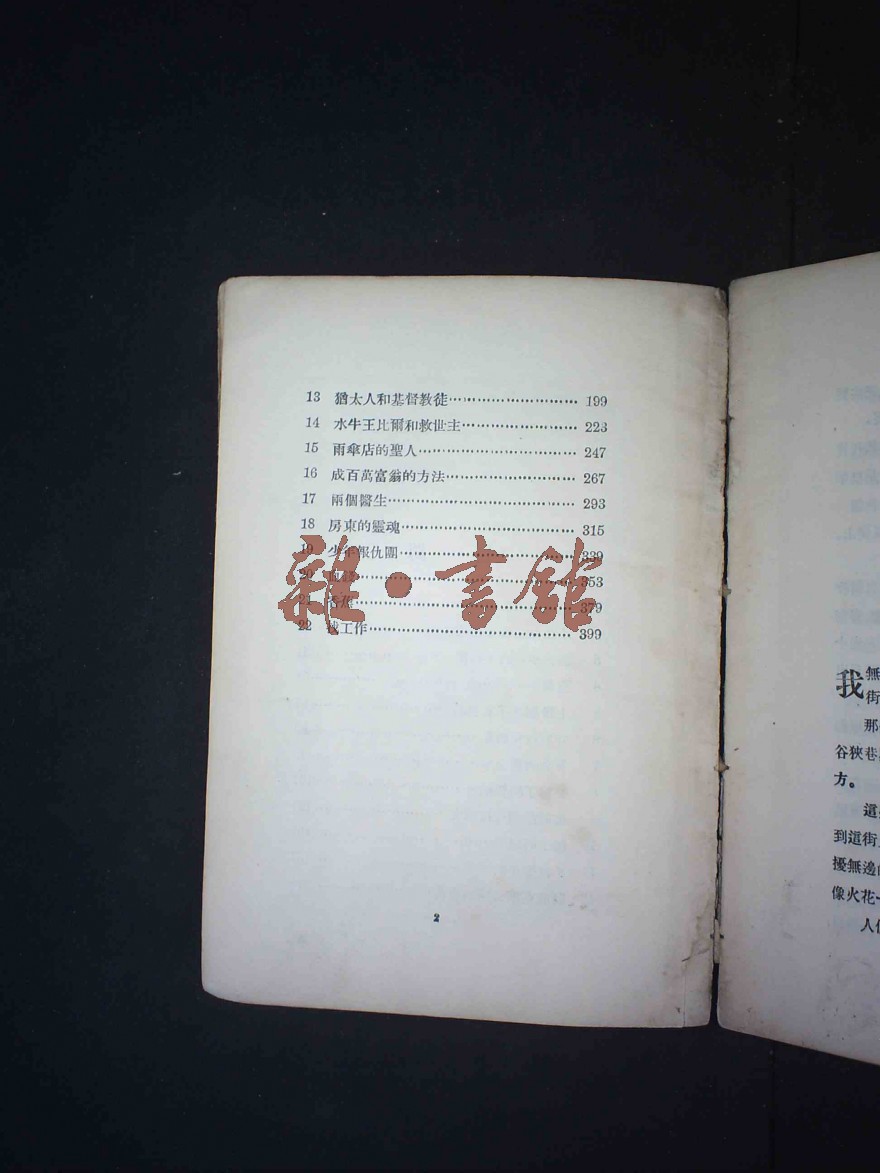 13 猶太人和基督教徒 199
14 水牛王比爾和救世主 223
15 雨傘店的聖人 247
16 成百萬富翁的方法 267
17 兩個醫生 293
18 房東的靈魂 315
19 少年報仇團 339
20 353
21 香蕉 379
22 找工作 399
雜·書館
2
我無
街
那
谷狹巷
方。
這
到這街
擾無邊
像火花
人